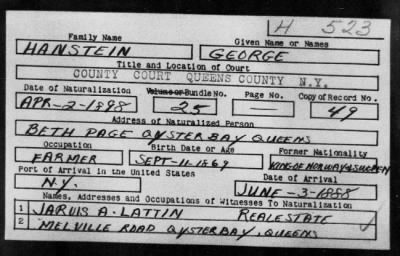 H 523
Family Name Given Name or Names
HANSTEIN GEORGE
Title and Location of Court
COUNTY COURT QUEENS COUNTY N.Y.
Date of Naturalization Volume or Bundle No. Page No. Copy of Record No.
APR-2-1898 25 — 49
Address of Naturalized Person
BETH PAGE OYSTER BAY QUEENS
Occupation Birth Date or Age Former Nationality
FARMER SEPT-11-1869 KING OF NORWAY & SWEDEN
Port of Arrival in the United States Date of Arrival
N.Y. JUNE-3-1888
Names, Addresses and Occupations of Witnesses To Naturalization
1 JARVIS A. LATTIN REAL ESTATE
2 MELVILLE ROAD OYSTER BAY, QUEENS